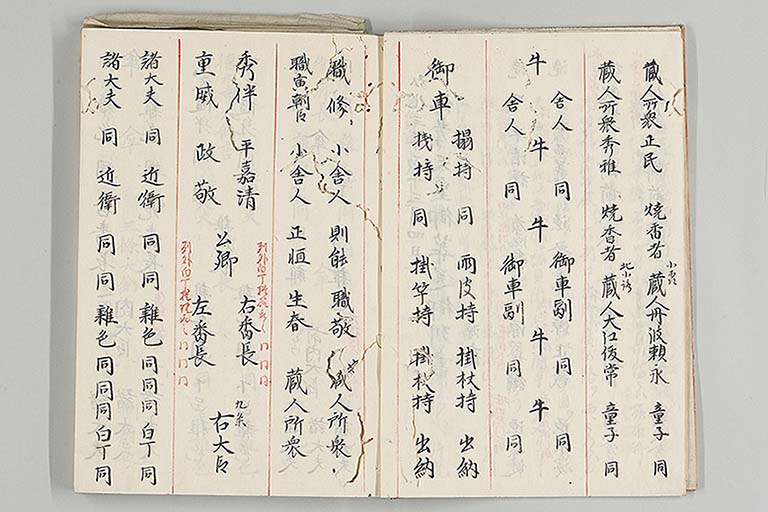 蔵人所衆正民 焼香者 蔵人丹波頼永 童子 同
蔵人所衆秀雅 焼香者 北小路 蔵人大江俊常 童子 同
舎人 同 御車副 同
牛 牛 牛 牛 牛
舎人 同 御車副 同 同
榻持 同 雨皮持 掛杖持 出納
御車
桟持 同 掛竿持 掛杖持 出納
職修 小舎人 則能 職敬 蔵人所衆
職寅朝臣 小舎人 正恒 生春 蔵人所衆
秀伴 平嘉清 列外白丁 右番長 九条
公卿 右大臣
重威 政敬 列外白丁 左番長
諸大夫 同 近衛 同 同 雑色 同 同 同 白丁 同
諸大夫 同 近衛 同 同 雑色 同 同 同 白丁 同